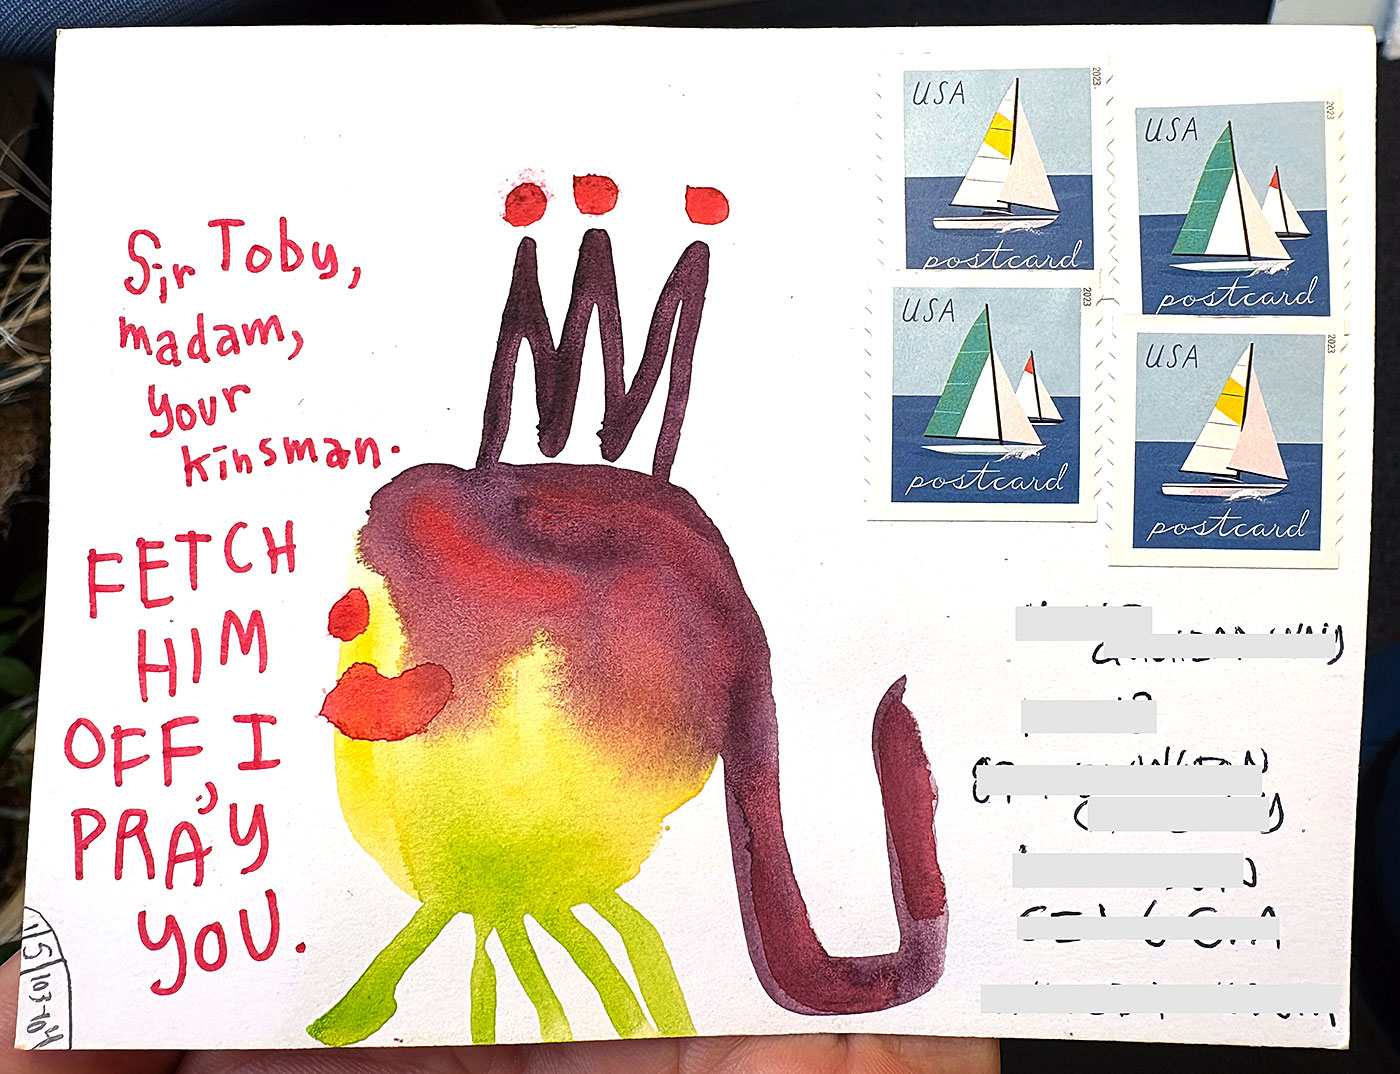 Sir Toby,
madam,
your
kinsman.
FETCH
HIM
OFF, I
PRAY
YOU.
1/5/103-104
USA
2023
postcard
USA
2023
postcard
USA
2023
postcard
USA
2023
postcard